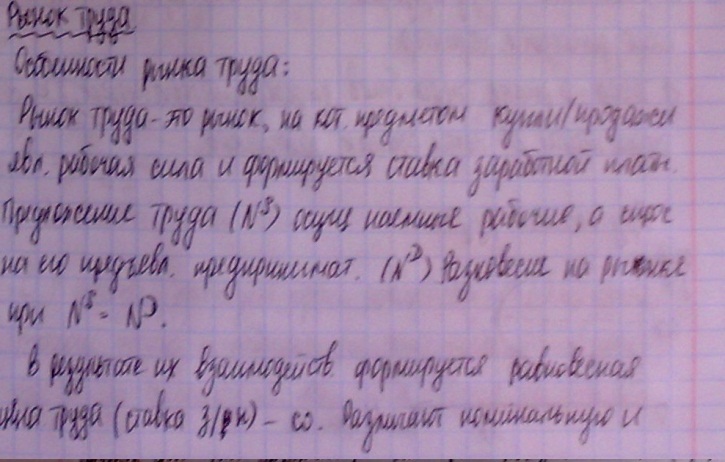 Рынок труда
Особенности рынка труда:
Рынок труда - это рынок, на кот. предметом купли/продажи
явл. рабочая сила и формируется ставка заработной платы.
Предложение труда (N^S) осущ наемные рабочие, а спрос
на его предъявл. предпринимат. (N^D) Равновесие на рынке
при N^S = N^D.
В результате их взаимодейств формируется равновесная
цена труда (ставка з/пл) - ω. Различают номинальную и